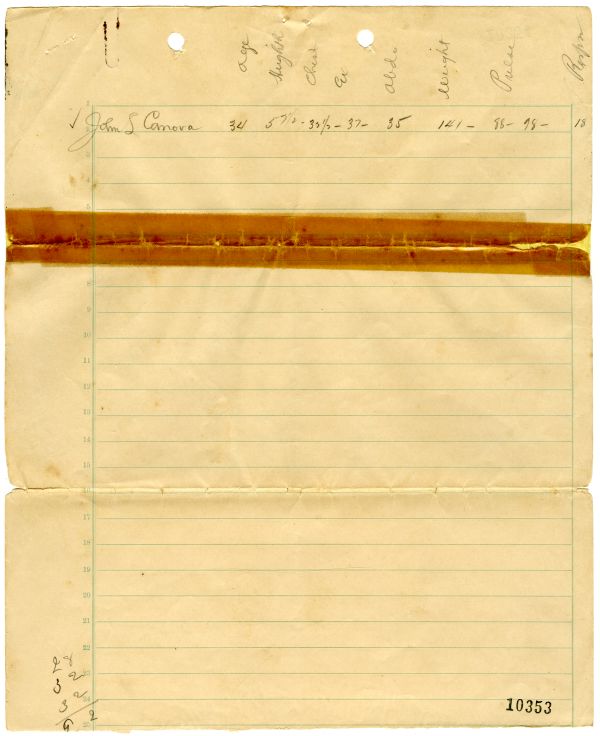 Age Heighth Chest Ex Abdo Weight Pulse Respn
1
✓ John L Canova 34 5 7½ - 35½ - 37 - 35 141 - 88 - 98 - 18
5
8
9
10
11
12
13
14
15
16
17
18
19
20
21
22
23
24
25
10353